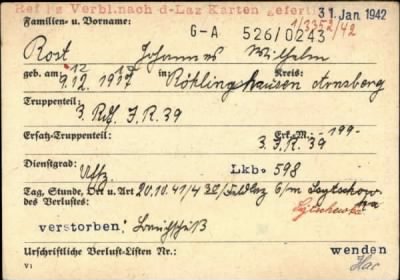 Ref I z Verbl.nach d-Laz Karten gefert
31. Jan. 1942
Familien- u. Vorname:
G-A 526/0243
1/3352/42
Rost Johannes Wilhelm
geb. am 9.12.1917 in Röhlinghausen Kreis: Arnsberg
12 12
Truppenteil:
3. I.R. 39
Ersatz-Truppenteil: Erk.-M. -199-
3. I.R. 39
Dienstgrad: Uffz Lkb. 598
Tag, Stunde, Ort u. Art 20.10.41 /4 Feldlaz 6/m
des Verlustes: Sytschewka
verstorben, Bauchschuß
Urschriftliche Verlust-Listen Nr.: wenden
V1